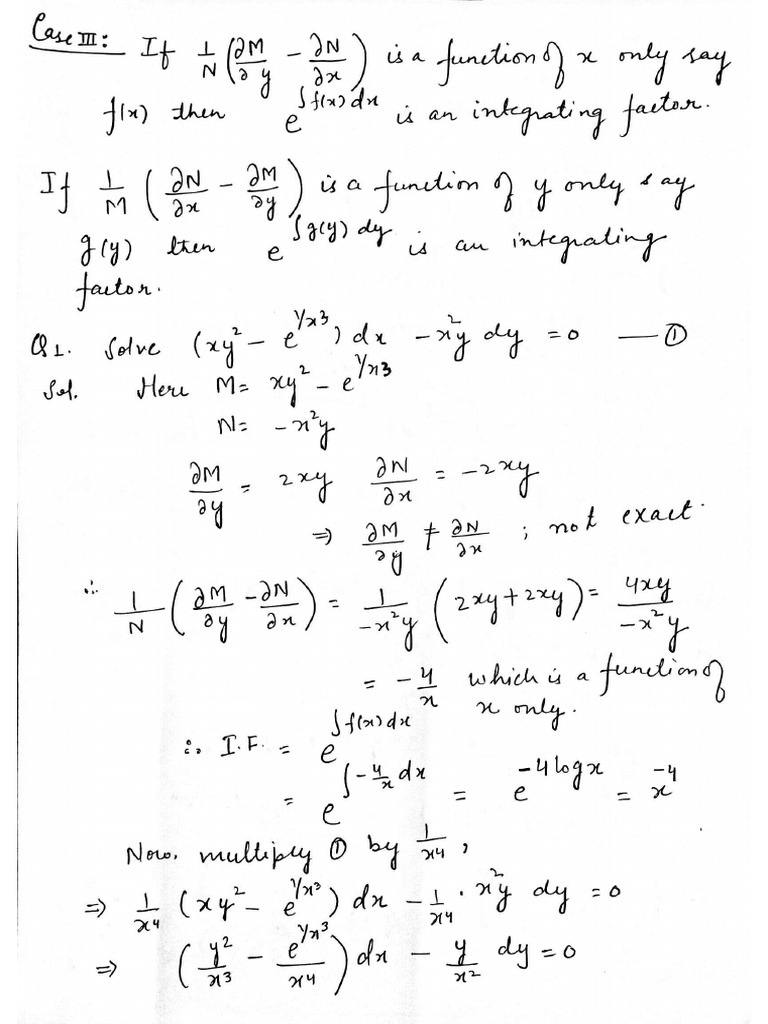 Case III: If 1/N (∂M/∂y - ∂N/∂x) is a function of x only say
f(x) then e^{∫f(x)dx} is an integrating factor.
If 1/M (∂N/∂x - ∂M/∂y) is a function of y only say
g(y) then e^{∫g(y)dy} is an integrating
factor.
Q1. Solve (xy² - e^{1/x³}) dx - x²y dy = 0 — ①
Sol. Here M = xy² - e^{1/x³}
N = -x²y
∂M/∂y = 2xy ∂N/∂x = -2xy
⇒ ∂M/∂y ≠ ∂N/∂x ; not exact.
∴ 1/N (∂M/∂y - ∂N/∂x) = 1/(-x²y) (2xy + 2xy) = 4xy/(-x²y)
= -4/x which is a function of
x only.
∴ I.F. = e^{∫f(x)dx}
= e^{∫-4/x dx} = e^{-4 log x} = x^{-4}
Now, multiply ① by 1/x⁴,
⇒ 1/x⁴ (xy² - e^{1/x³}) dx - 1/x⁴ · x²y dy = 0
⇒ (y²/x³ - e^{1/x³}/x⁴) dx - y/x² dy = 0